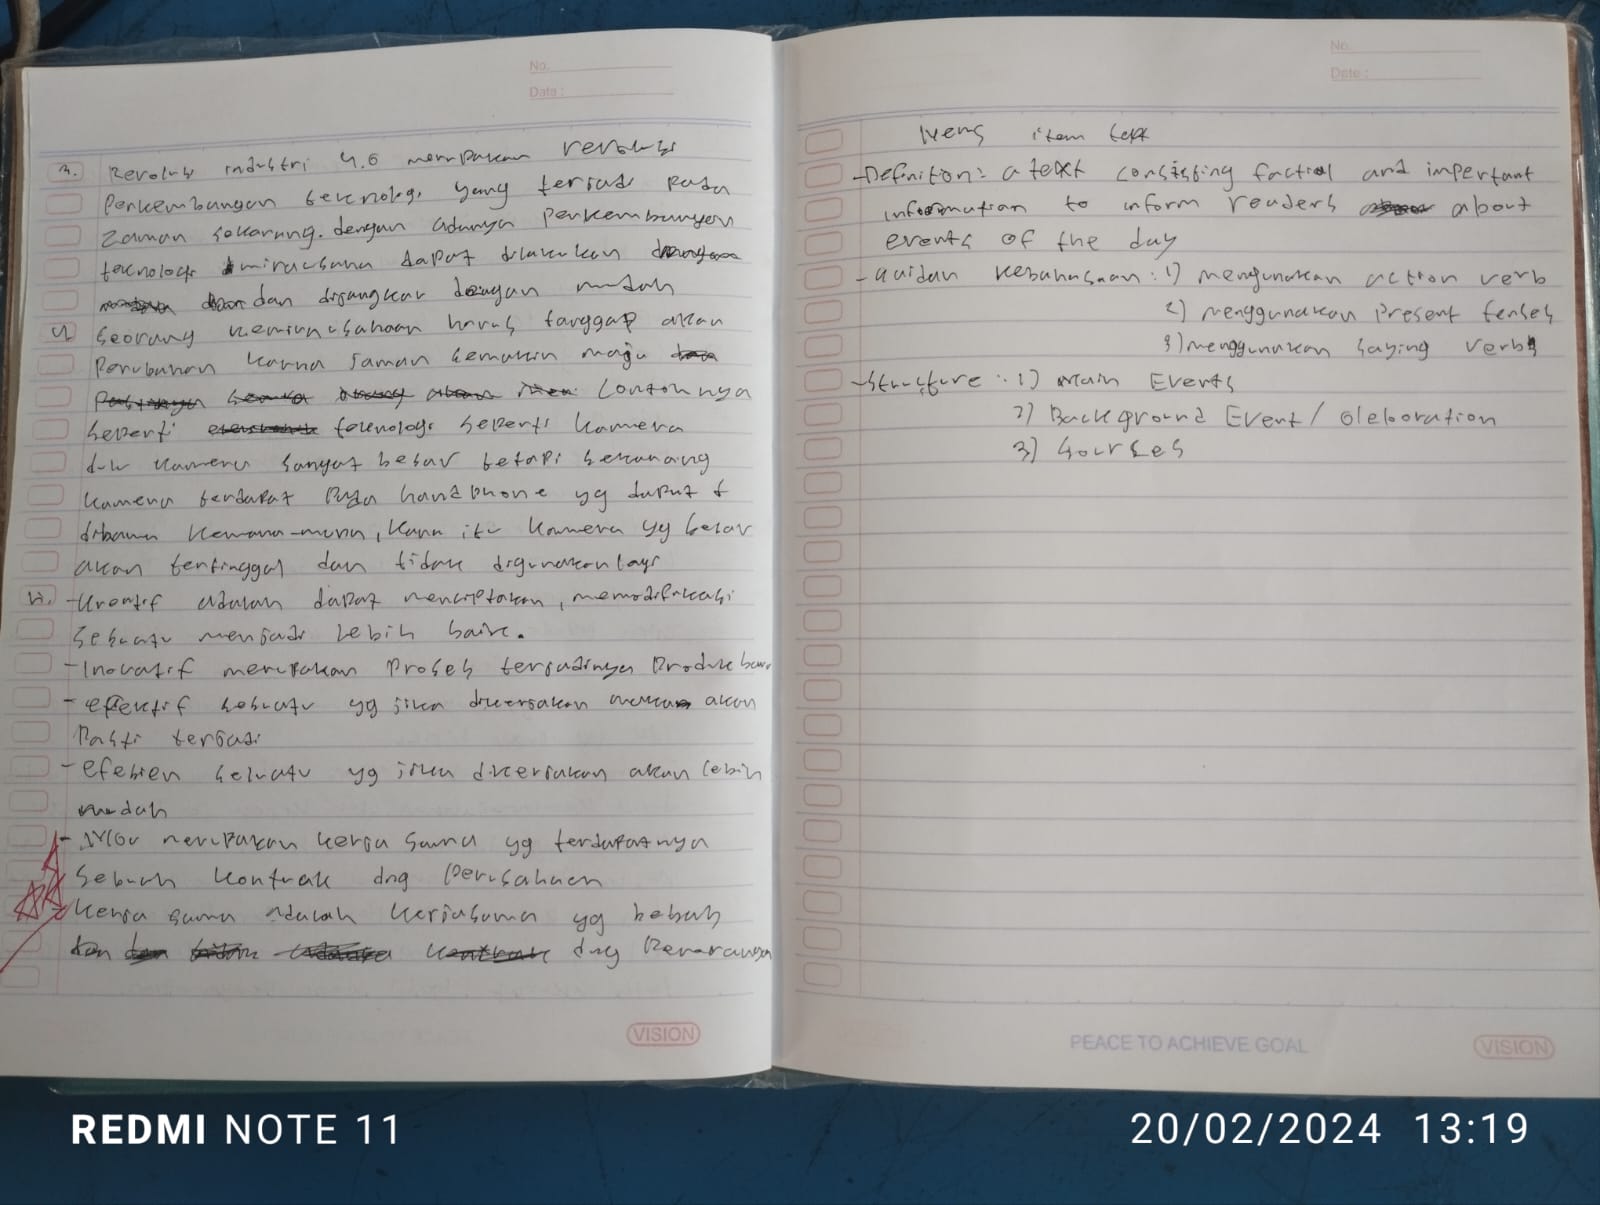 No.
Date :
3. Revolusi industri 4.0 merupakan revolusi
Perkembangan teknologi yang terjadi pada
zaman sekarang. dengan adanya perkembangan
teknologi wirausaha dapat dilakukan
dan dijangkau dengan mudah
4. Seorang kewirausahaan harus tanggap akan
Perubahan karna jaman semakin maju
Contohnya
Seperti teknologi seperti kamera
dulu kamera sangat besar tetapi sekarang
kamera terdapat pada handphone yg dapat
dibawa kemana-mana, karna itu kamera yg besar
akan tertinggal dan tidak digunakan lagi
- Kreatif adalah dapat menciptakan, memodifikasi
sesuatu menjadi lebih baik.
- Inovatif merupakan Proses terjadinya Produk baru
- efektif sesuatu yg jika dikerjakan akan
Pasti terjadi
- efesien sesuatu yg jika dikerjakan akan lebih
mudah
- MOU merupakan kerja sama yg terdapatnya
Sebuah kontrak dng Perusahaan
kerja sama adalah kerjasama yg bebas
dng
VISION
No.
Date :
News item text
- Definition : a text consisting factial and impertant
information to inform readers about
events of the day
- kaidah kebahasaan : 1) mengunakan action verb
2) menggunakan Present tenses
3) menggunakan saying verbs
- Structure : 1) Main Events
2) Background Event / Oleboration
3) Sourses
PEACE TO ACHIEVE GOAL
VISION
REDMI NOTE 11
20/02/2024 13:19